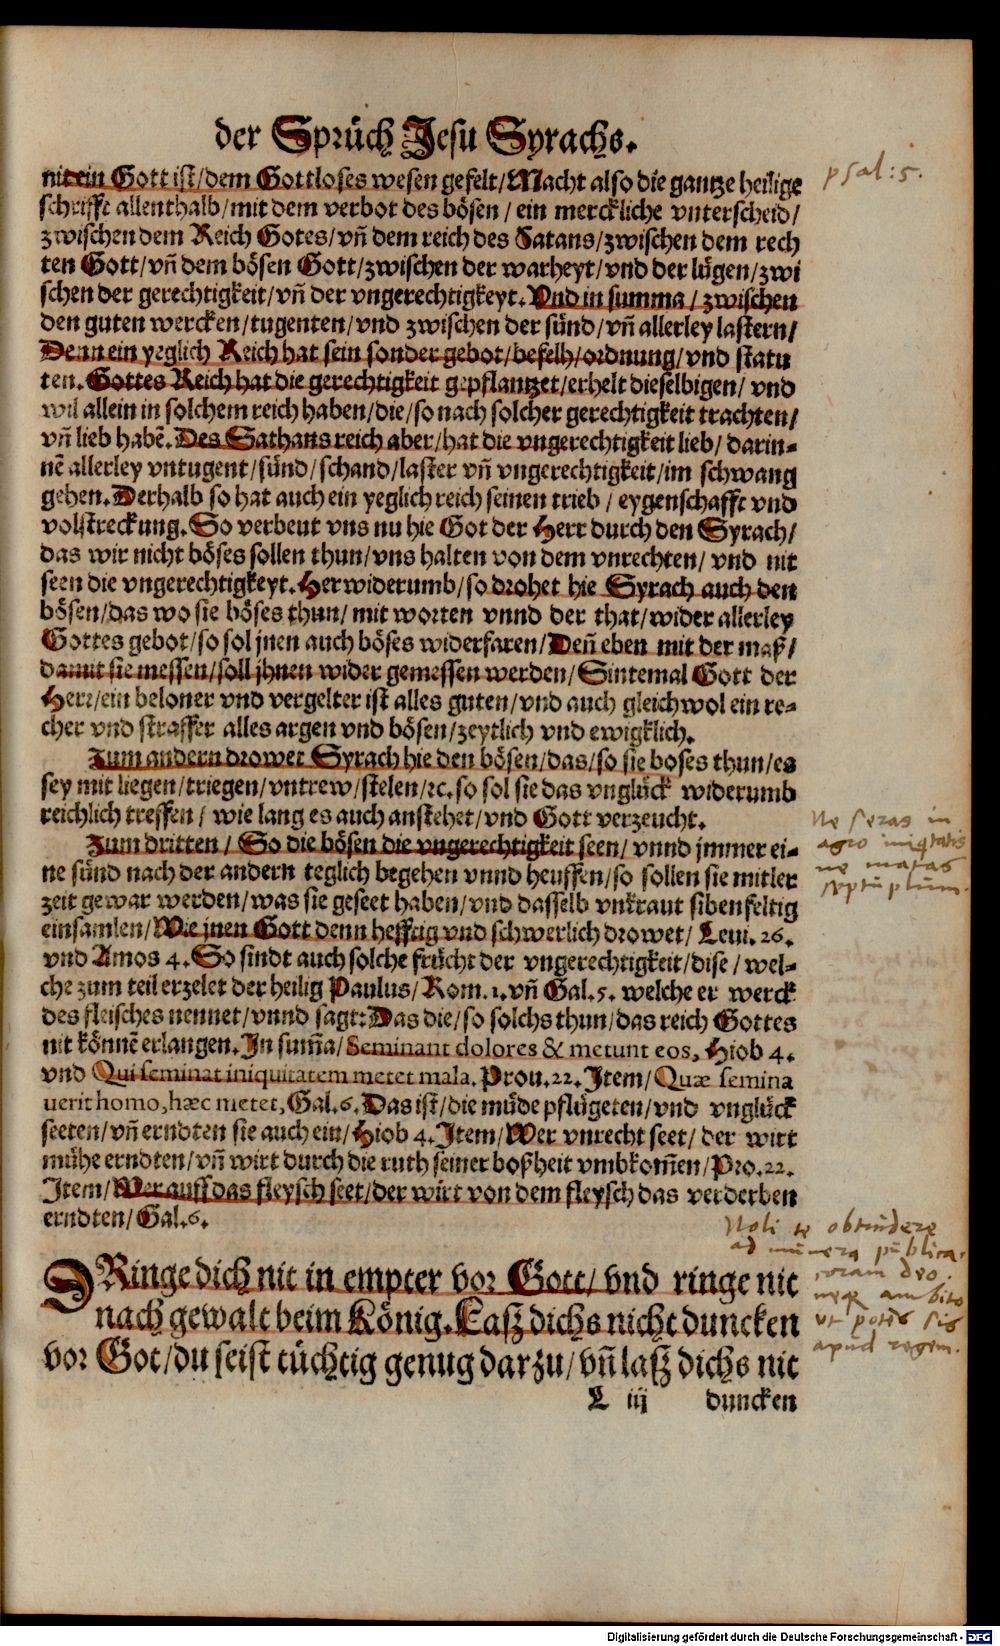 der Sprüch Jesu Syrachs.
nit ein Gott ist/dem Gottloses wesen gefelt/Macht also die gantze heilige
schrifft allenthalb/mit dem verbot des bösen/ein merckliche vnterscheid/
zwischen dem Reich Gotes/vñ dem reich des Satans/zwischen dem rech
ten Gott/vñ dem bösen Gott/zwischen der warheyt/vnd der lügen/zwi
schen der gerechtigkeit/vñ der vngerechtigkeyt. Vnd in summa/zwischen
den guten wercken/tugenten/vnd zwischen der sünd/vñ allerley lastern/
Denn ein yeglich Reich hat sein sonder gebot/befelh/ordnung/vnd statu
ten. Gottes Reich hat die gerechtigkeit gepflantzet/erhelt dieselbigen/vnd
wil allein in solchem reich haben/die/so nach solcher gerechtigkeit trachten/
vñ lieb habẽ. Des Sathans reich aber/hat die vngerechtigkeit lieb/darin-
nẽ allerley vntugent/sünd/schand/laster vñ vngerechtigkeit/im schwang
gehen. Derhalb so hat auch ein yeglich reich seinen trieb/eygenschafft vnd
volstreckung. So verbeut vns nu hie Got der Herr durch den Syrach/
das wir nicht böses sollen thun/vns halten von dem vnrechten/vnd nit
seen die vngerechtigkeyt. Herwiderumb/so drohet hie Syrach auch den
bösen/das wo sie böses thun/mit worten vnnd der that/wider allerley
Gottes gebot/so sol jnen auch böses widerfaren/Deñ eben mit der maß/
damit sie messen/soll jhnen wider gemessen werden/Sintemal Gott der
Herr/ein beloner vnd vergelter ist alles guten/vnd auch gleichwol ein re-
cher vnd straffer alles argen vnd bösen/zeytlich vnd ewigklich.
Zum andern drowet Syrach hie den bösen/das/so sie boses thun/es
sey mit liegen/triegen/vntrew/stelen/ꝛc. so sol sie das vnglück widerumb
reichlich treffen/wie lang es auch anstehet/vnd Gott verzeucht.
Zum dritten/So die bösen die vngerechtigkeit seen/vnnd jmmer ei-
ne sünd nach der andern teglich begehen vnnd heuffen/so sollen sie mitler
zeit gewar werden/was sie geseet haben/vnd dasselb vnkraut sibenfeltig
einsamlen/Wie jnen Gott denn hefftig vnd schwerlich drowet/Leui. 26.
vnd Amos 4. So sindt auch solche frücht der vngerechtigkeit/dise/wel-
che zum teil erzelet der heilig Paulus/Rom. 1. vñ Gal. 5. welche er werck
des fleisches nennet/vnnd sagt: Das die/so solchs thun/das reich Gottes
nit könnẽ erlangen. In suma/Seminant dolores & metunt eos, Hiob 4.
vnd Qui seminat iniquitatem metet mala. Prou. 22. Item/Quæ semina
uerit homo, hæc metet, Gal. 6. Das ist/die müde pflügeten/vnd vnglück
seeten/vñ erndten sie auch ein/Hiob 4. Item/Wer vnrecht seet/der wirt
mühe erndten/vñ wirt durch die ruth seiner boßheit vmbkomen/Pro. 22.
Item/Wer auff das fleysch seet/der wirt von dem fleysch das verderben
erndten/Gal. 6.
DRinge dich nit in empter vor Gott/vnd ringe nit
nach gewalt beim König. Laß dichs nicht duncken
vor Got/du seist tüchtig genug darzu/vñ laß dichs nit
L iij duncken
psal: 5.
Ne seras in
agro iniqtatis
ne metas
septuplum.
Noli te obtrudere
ad munera publica
coram deo.
neqz ambito
ut potes sis
apud regem.
Digitalisierung gefördert durch die Deutsche Forschungsgemeinschaft - DFG